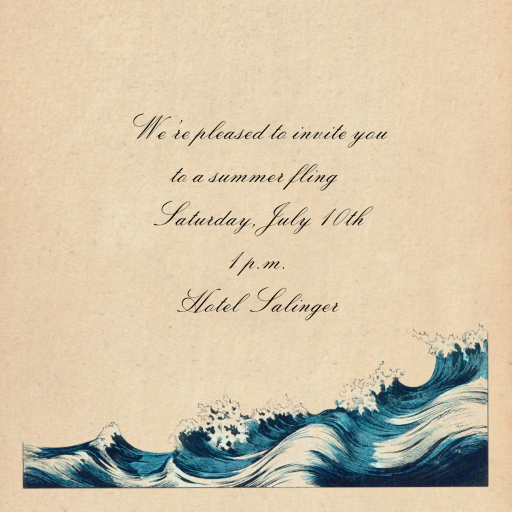 We're pleased to invite you
to a summer fling
Saturday, July 10th
1 p.m.
Hotel Salinger